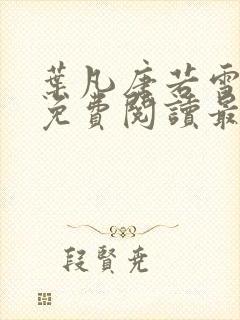 葉凡唐若雪
免費閱讀最
段賢尭